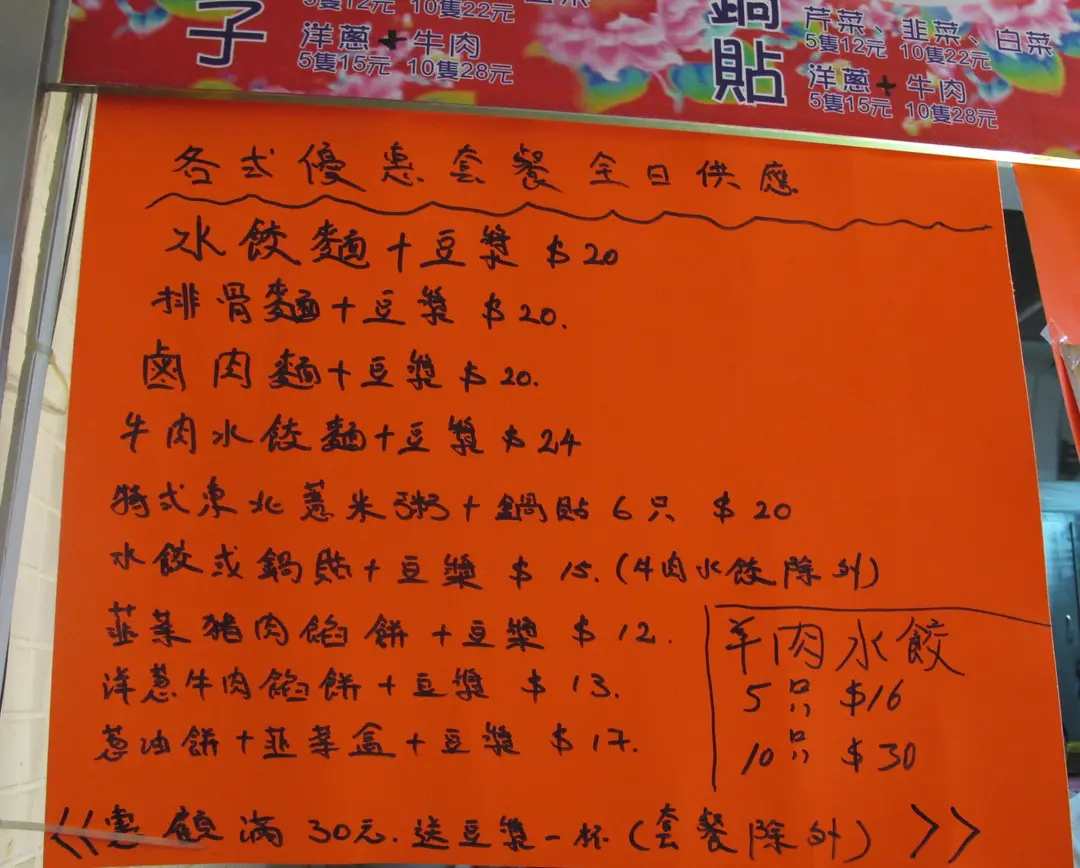 子
5隻12元 10隻22元
洋蔥+牛肉
5隻15元 10隻28元
鍋貼
芹菜、韭菜、白菜
5隻12元 10隻22元
洋蔥+牛肉
5隻15元 10隻28元
各式優惠套餐全日供應
水餃麵+豆漿 $20
排骨麵+豆漿 $20.
鹵肉麵+豆漿 $20.
牛肉水餃麵+豆漿 $24
特式東北薏米粥+鍋貼6只 $20
水餃或鍋貼+豆漿 $15.(牛肉水餃除外)
韮菜豬肉餡餅+豆漿 $12.
洋蔥牛肉餡餅+豆漿 $13.
蔥油餅+韮菜盒+豆漿 $17.
羊肉水餃
5只 $16
10只 $30
<<惠顧滿30元.送豆漿一杯(套餐除外)>>